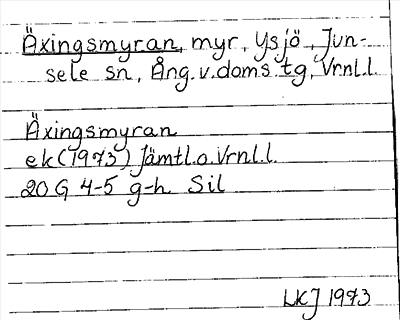 Äxingsmyran, myr, Ysjö, Jun-
sele sn, Ång.v.doms.tg, Vrnl.l.
Äxingsmyran
ek(1973) Jämtl.o.Vrnl.l.
20 G 4-5 g-h Sil
LKJ 1973